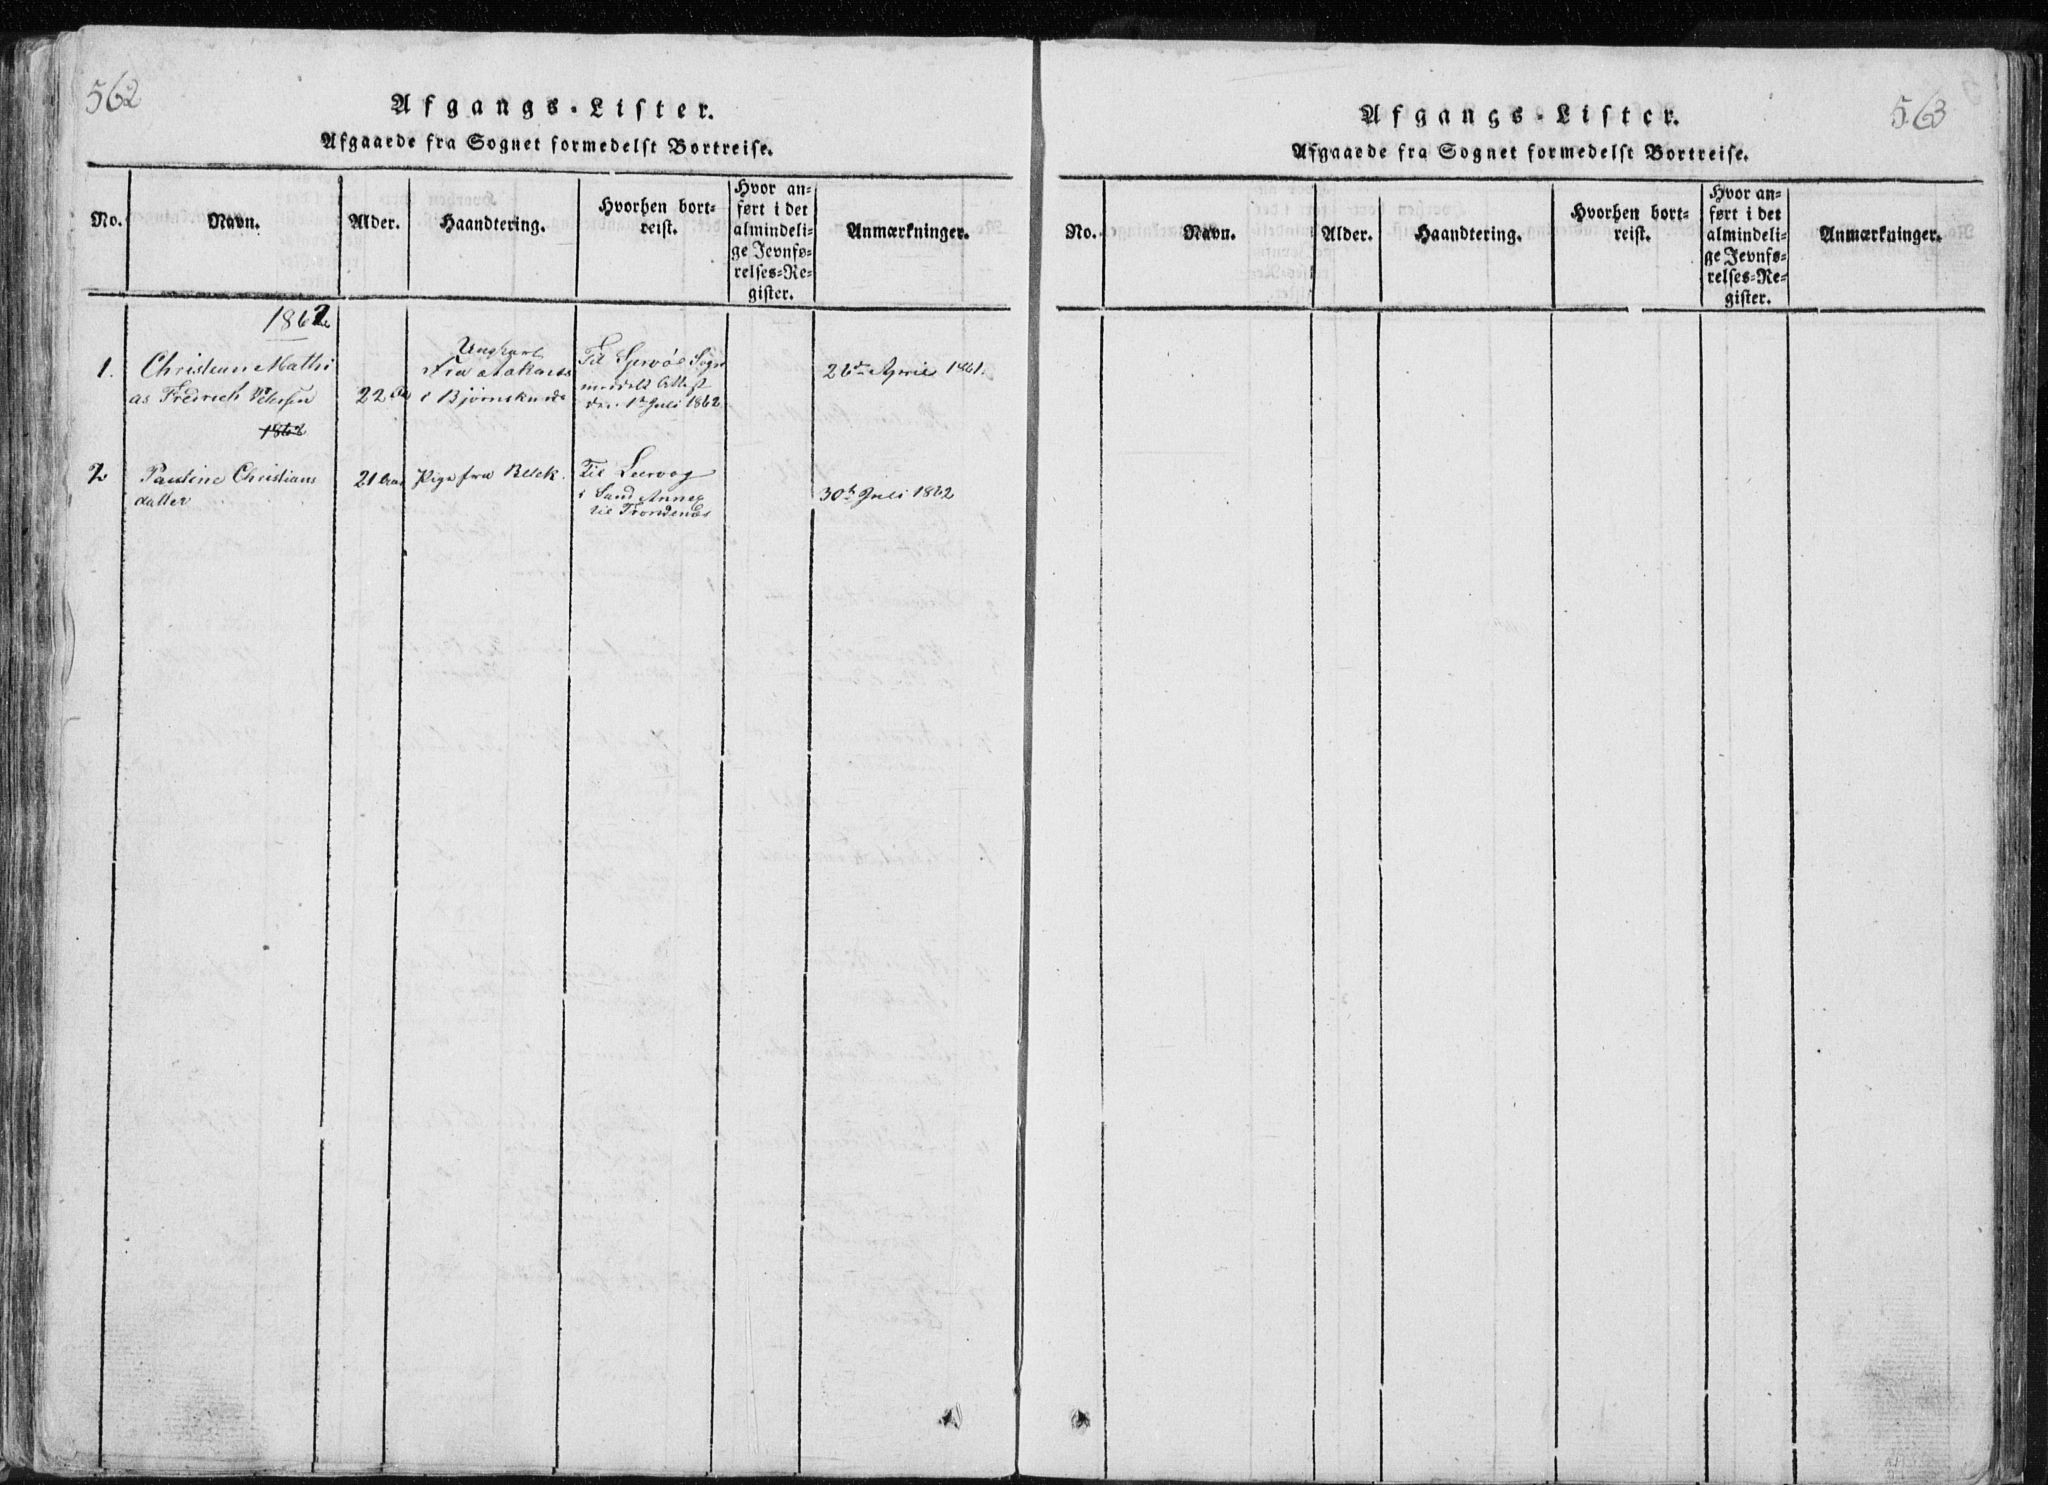 562
Afgangs-Lister.
Afgaaede fra Sognet formedelst Bortreise.
No.
Navn.
Alder.
Haandtering.
Hvorhen bort-
reist.
Hvor an-
ført i det
almindeli-
ge Jevnfø-
relses-Re-
gister.
Anmærkninger.
1862
1. Christian Mathi
as Fredrich Petersen
22
Ungkarl
Fra
i
Til Sogn
den 1 Juli 1862
26de April 1861.
1862
2 Pauline Christians
datter
21 Aar
Pige fra
Til Leervog
i Sand Annex
til Trondenæs
30te Juli 1862
563
Afgangs-Lister.
Afgaaede fra Sognet formedelst Bortreise.
No.
Navn.
Alder.
Haandtering.
Hvorhen bort-
reist.
Hvor an-
ført i det
almindeli-
ge Jevnfø-
relses-Re-
gister.
Anmærkninger.